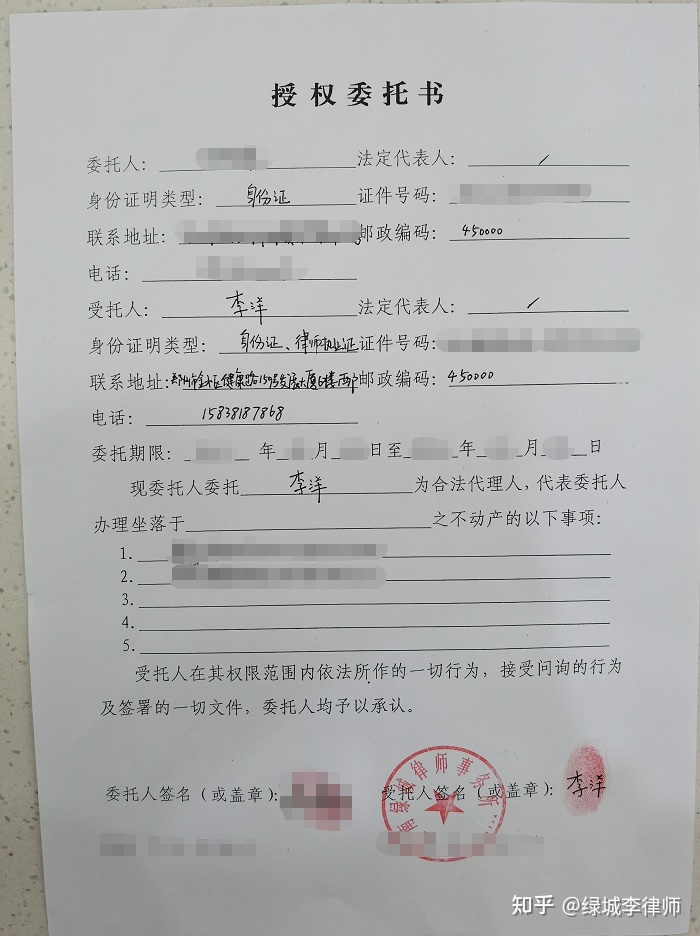 授权委托书
委托人： 法定代表人： /
身份证明类型： 身份证 证件号码：
联系地址： 邮政编码： 450000
电话：
受托人： 李洋 法定代表人： /
身份证明类型： 身份证、律师执业证 证件号码：
联系地址： 健康路159号 大厦6楼 邮政编码： 450000
电话： 15838187868
委托期限： 年 月 日至 年 月 日
现委托人委托 李洋 为合法代理人，代表委托人
办理坐落于 之不动产的以下事项：
1.
2.
3.
4.
5.
受托人在其权限范围内依法所作的一切行为，接受问询的行为
及签署的一切文件，委托人均予以承认。
委托人签名（或盖章）： 受托人签名（或盖章）： 李洋
南绿城律师事务所
知乎 @绿城李律师